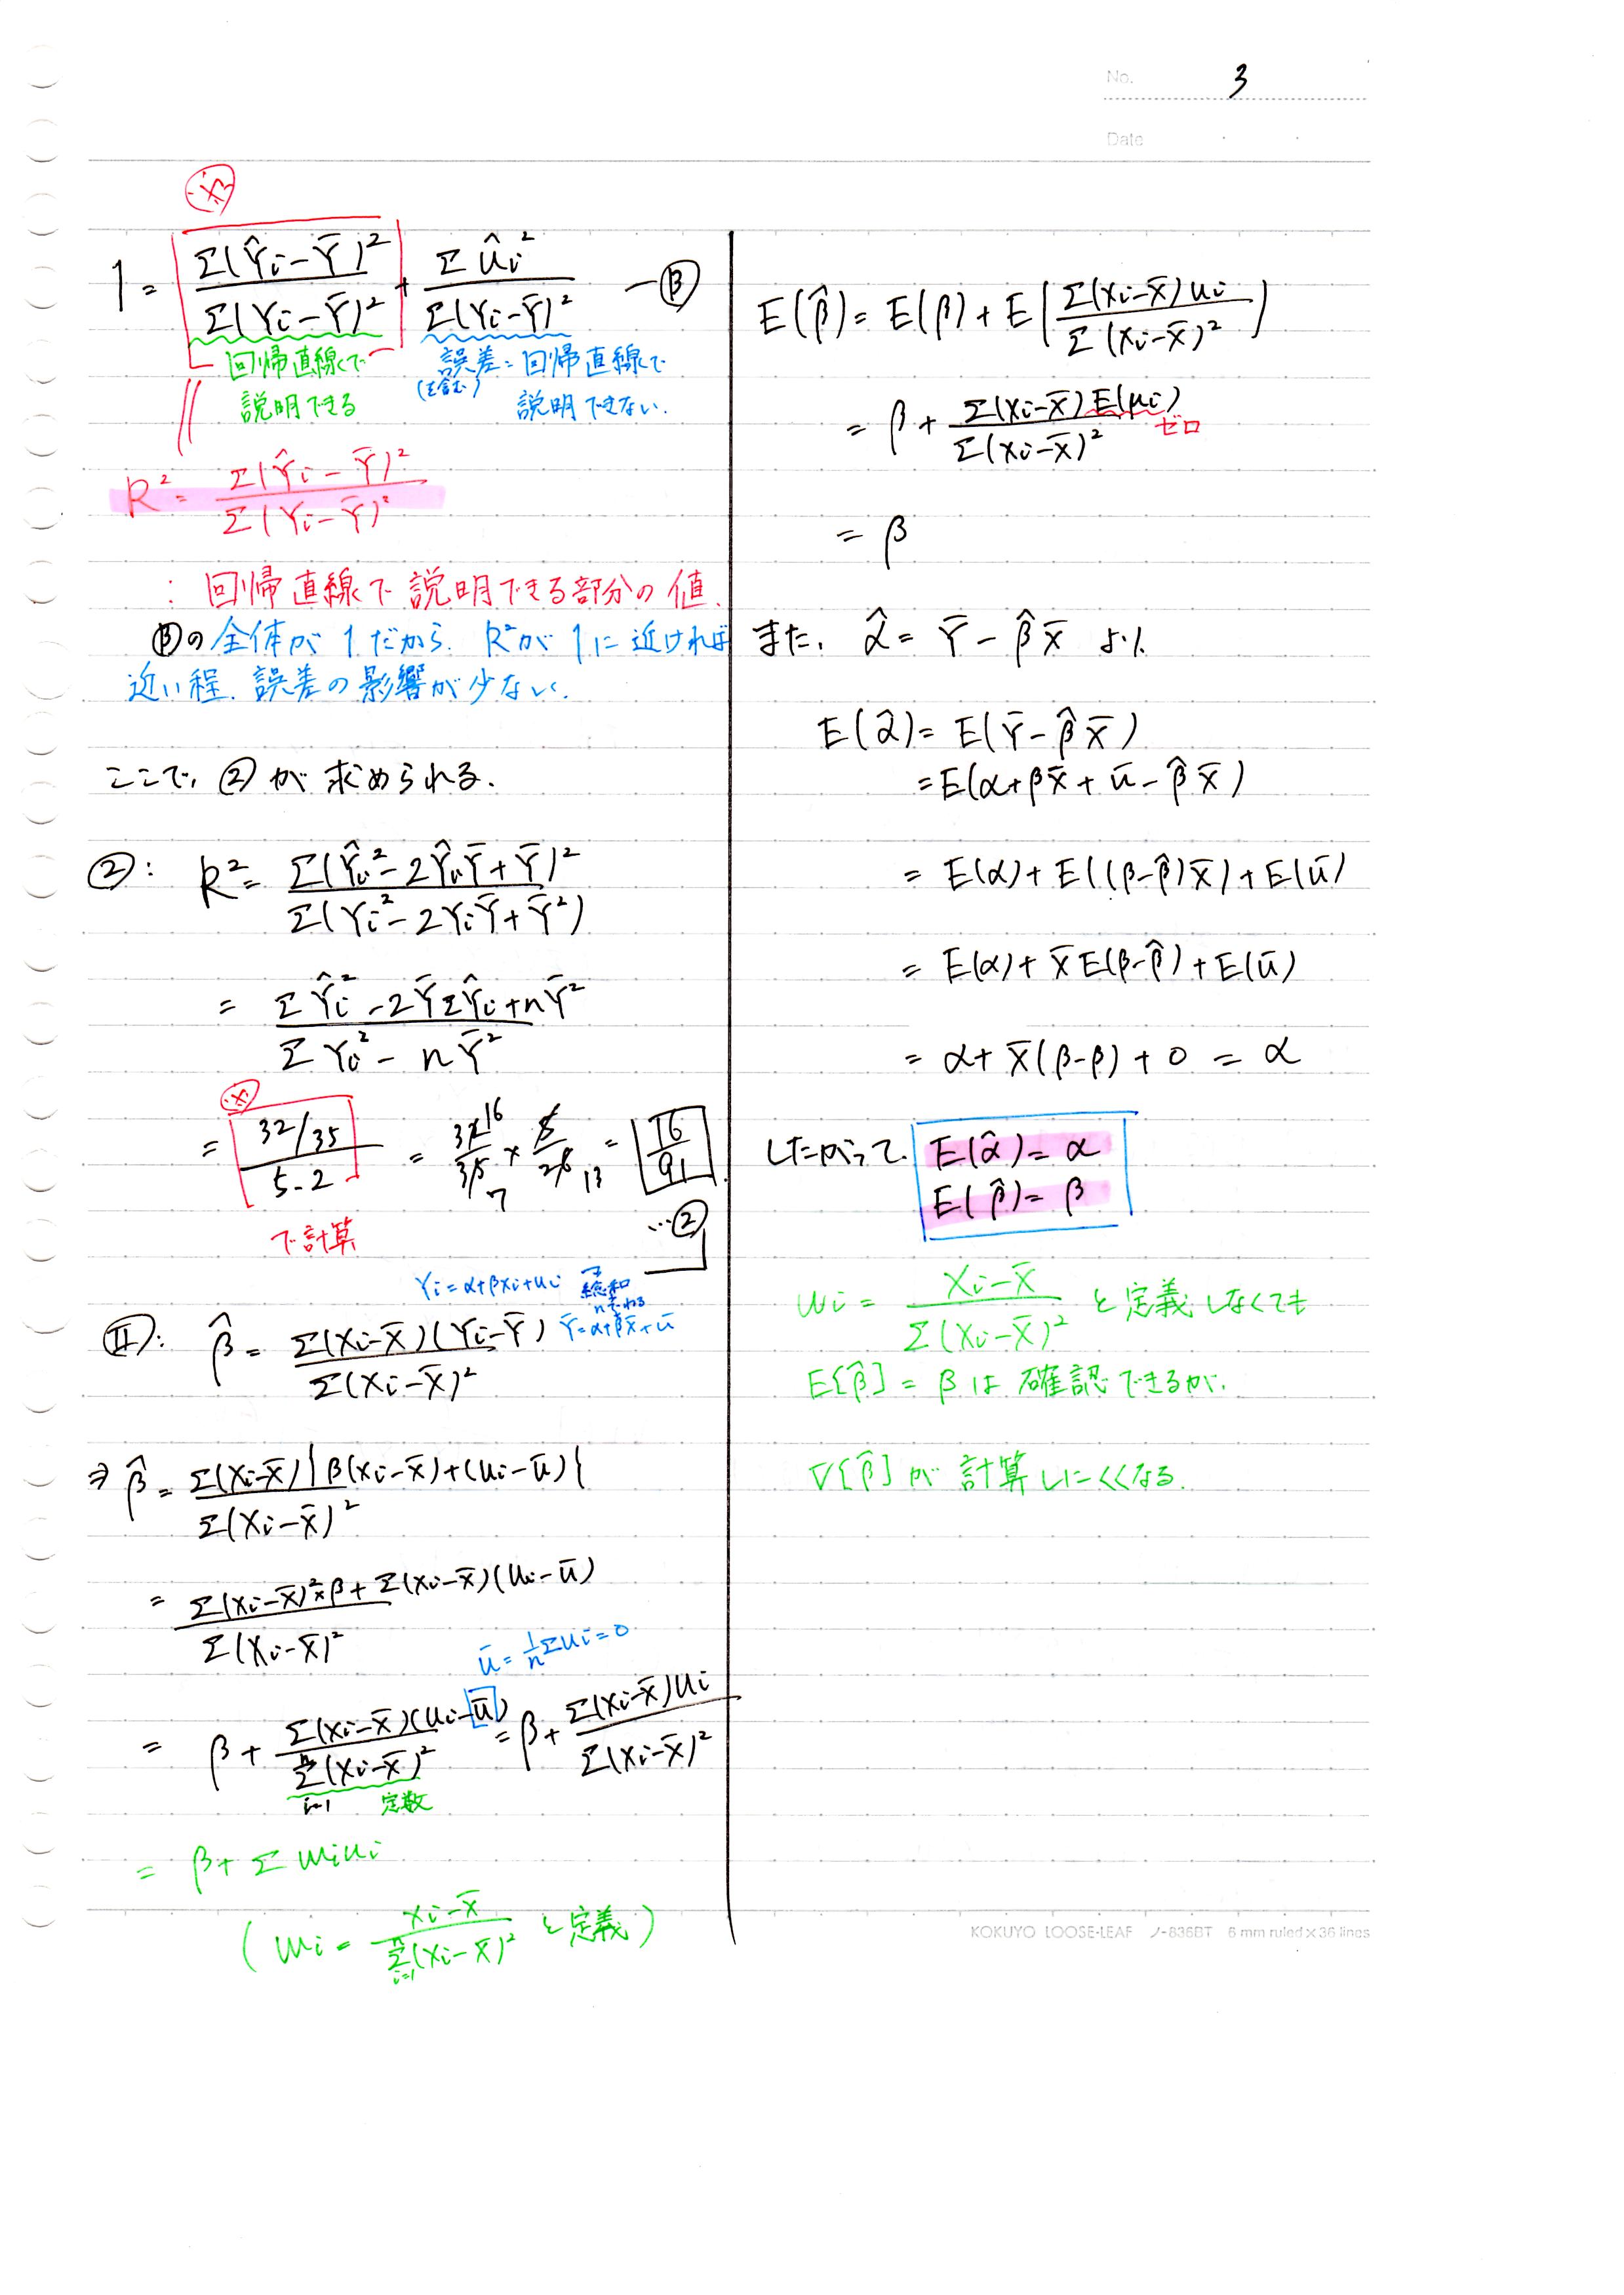 No. 3
Date
※
1 = Σ(Ŷi−Ȳ)² / Σ(Yi−Ȳ)² + Σûi² / Σ(Yi−Ȳ)² —Ⓑ
回帰直線で 誤差:回帰直線で
説明できる (を含む) 説明できない.
R² = Σ(Ŷi−Ȳ)² / Σ(Yi−Ȳ)²
: 回帰直線で説明できる部分の値.
Ⓑの全体が1だから. R²が1に近ければ
近い程. 誤差の影響が少ない.
ここで, ②が求められる.
②: R² = Σ(Ŷi²−2ŶiȲ+Ȳ)² / Σ(Yi²−2YiȲ+Ȳ²)
= ΣŶi²−2ȲΣŶi+nȲ² / ΣYi²−nȲ²
※
= 32/35 / 5.2 = 32 16 / 35 7 × 5 / 26 13 = 16/91
で計算 …②
Yi=α+βXi+ui → 総和
nでわる
Ȳ=α+βX̄+ū
Ⅱ: β̂ = Σ(Xi−X̄)(Yi−Ȳ) / Σ(Xi−X̄)²
⇒ β̂ = Σ(Xi−X̄){β(Xi−X̄)+(ui−ū)} / Σ(Xi−X̄)²
= Σ(Xi−X̄)²×β+Σ(Xi−X̄)(ui−ū) / Σ(Xi−X̄)²
ū = 1/n Σui=0
= β + Σ(Xi−X̄)(ui−ū) / Σ(Xi−X̄)² = β + Σ(Xi−X̄)ui / Σ(Xi−X̄)²
i=1 定数
= β+Σwiui
(wi = Xi−X̄ / Σ(Xi−X̄)² と定義)
i=1
E(β̂) = E(β) + E(Σ(Xi−X̄)ui / Σ(Xi−X̄)²)
= β + Σ(Xi−X̄)E(ui) / Σ(Xi−X̄)²
ゼロ
= β
また, α̂ = Ȳ − β̂X̄ より
E(α̂) = E(Ȳ−β̂X̄)
=E(α+βX̄+ū−β̂X̄)
= E(α)+E((β−β̂)X̄)+E(ū)
= E(α)+X̄E(β−β̂)+E(ū)
= α+X̄(β−β)+0 = α
したがって. E(α̂) = α
E(β̂) = β
wi = Xi−X̄ / Σ(Xi−X̄)² と定義しなくても
E[β̂] = β は確認できるが.
V[β̂]が計算しにくくなる.
KOKUYO LOOSE-LEAF ノ-836BT 6 mm ruled×36 lines